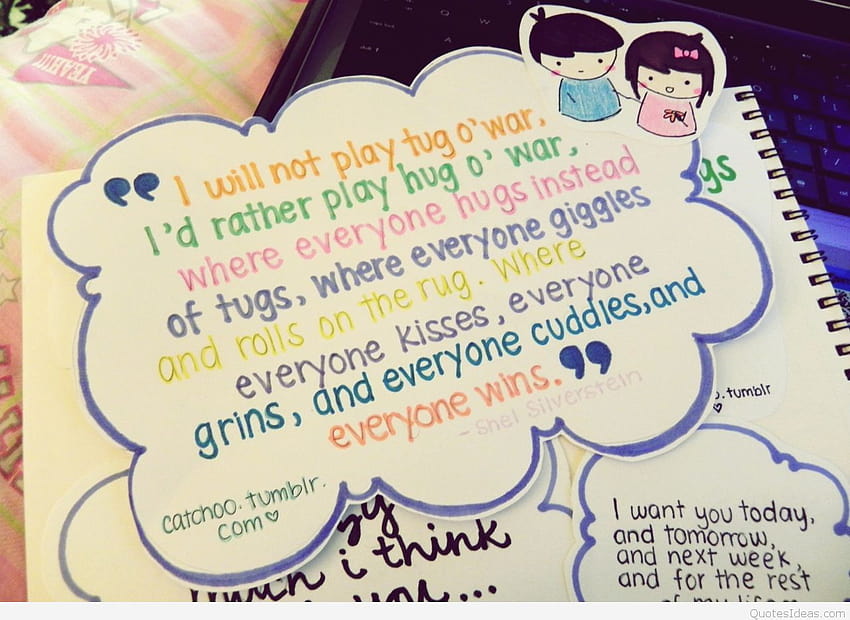 YEAH!!!
“ I will not play tug o'war,
I'd rather play hug o' war,
where everyone hugs instead
of tugs, where everyone giggles
and rolls on the rug. Where
everyone kisses, everyone
grins, and everyone cuddles, and
everyone wins. ”
- Shel Silverstein
catchoo.tumblr.
com ♡
gs
o.tumblr
♡
i think
I want you today,
and tomorrow,
and next week,
and for the rest
of my life
QuotesIdeas.com